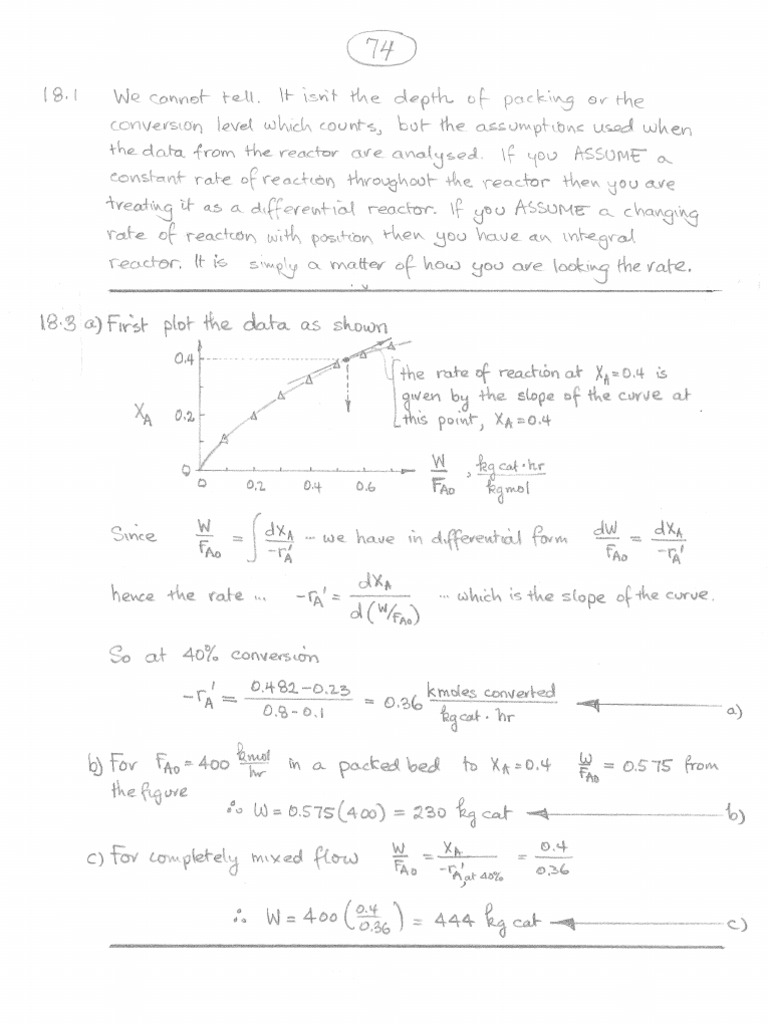 74
18.1 We cannot tell. It isn't the depth of packing or the
conversion level which counts, but the assumptions used when
the data from the reactor are analysed. If you ASSUME a
constant rate of reaction throughout the reactor then you are
treating it as a differential reactor. If you ASSUME a changing
rate of reaction with position then you have an integral
reactor. It is simply a matter of how you are looking the rate.
18.3 a) First plot the data as shown
0.4
X_A 0.2
0
0 0.2 0.4 0.6
the rate of reaction at X_A = 0.4 is
given by the slope of the curve at
this point, X_A = 0.4
W/F_A0 , kg cat·hr/kgmol
Since W/F_A0 = ∫ dX_A/-r_A' ... we have in differential form dW/F_A0 = dX_A/-r_A'
hence the rate ... -r_A' = dX_A/d(W/F_A0) ... which is the slope of the curve.
So at 40% conversion
-r_A' = (0.482-0.23)/(0.8-0.1) = 0.36 kmoles converted/kg cat·hr a)
b) For F_A0 = 400 kmol/hr in a packed bed to X_A = 0.4 W/F_A0 = 0.575 from
the figure
∴ W = 0.575(400) = 230 kg cat b)
c) For completely mixed flow W/F_A0 = X_A/-r_A', at 40% = 0.4/0.36
∴ W = 400 (0.4/0.36) = 444 kg cat c)